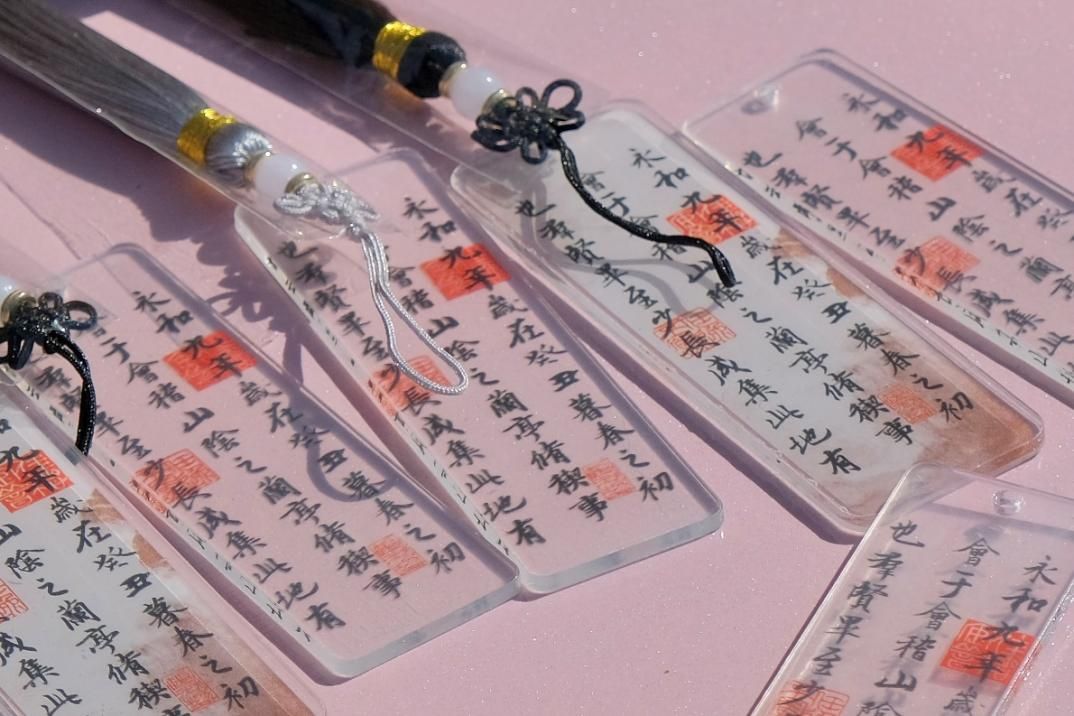 和九年歲在癸丑暮春之初
山陰之蘭亭脩禊事
咸集此
永和九年歲在癸丑暮春之初
于會稽山陰之蘭亭脩禊事
羣畢至少長咸集此地有
永和九年歲在癸丑暮春之初
會稽山陰之蘭亭脩禊事
也羣賢畢至少長咸集此地有
永和九年歲在癸丑暮春之初
會于會稽山陰之蘭亭脩禊事
也羣賢畢至少長咸集此地有
永和九年歲在癸
會于會稽山陰之蘭亭
也羣賢畢至少長咸集此
永和九年歲
會于會稽山陰
也羣賢畢至少